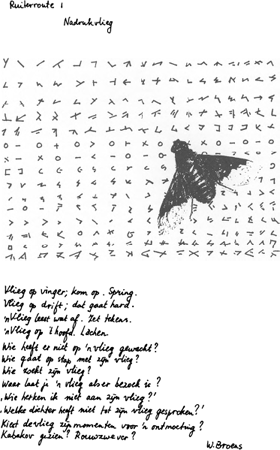 Ruiterroute 1
Nadrukvlieg
Vlieg op vinger; kom op. Spring.
Vlieg op drift; dat gaat hard.
'nVlieg leest wat af. Zet tekens.
'nVlieg op 't hoofd. Lachen.
Wie heeft er niet op 'n vlieg gewacht?
Wie gaat op stap met zijn vlieg?
Wie zoekt zijn vlieg?
Waar laat je 'n vlieg als er bezoek is?
'Wie herken ik niet aan zijn vlieg?'
'Welke dichter heeft niet tot zijn vlieg gesproken?'
Kiest de vlieg zijn momenten voor 'n ontmoeting?
Kabakov gezien? Rouwzwever?
W. Broens